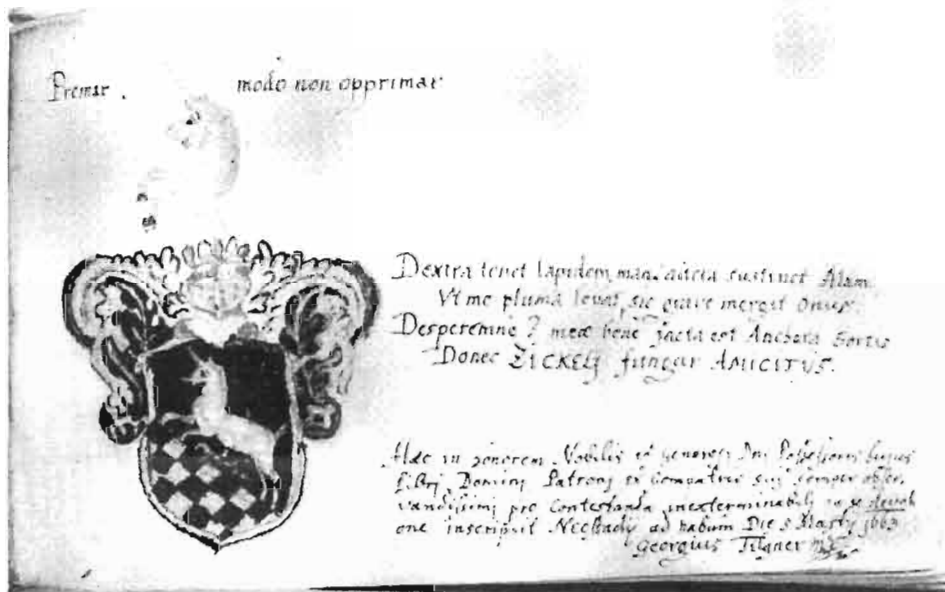 Premar. modo non opprimar
Dextra tenet lapidem, man, altera sustinet Alam.
Vt me pluma levat, sic grave mergit Onus.
Desperemne? meæ bene jacta est Anchora Sortis
Donec ZICKELJ fungar AMICITVS.
Hæc in honorem Nobilis et generosi Dni Possessoris hujus
Libri, Domini Patroni et Compatris sui semper obser
vandissimi pro Contestanda inexterminabili
one inscripsit Die 5 1663
Georgius Tilgner